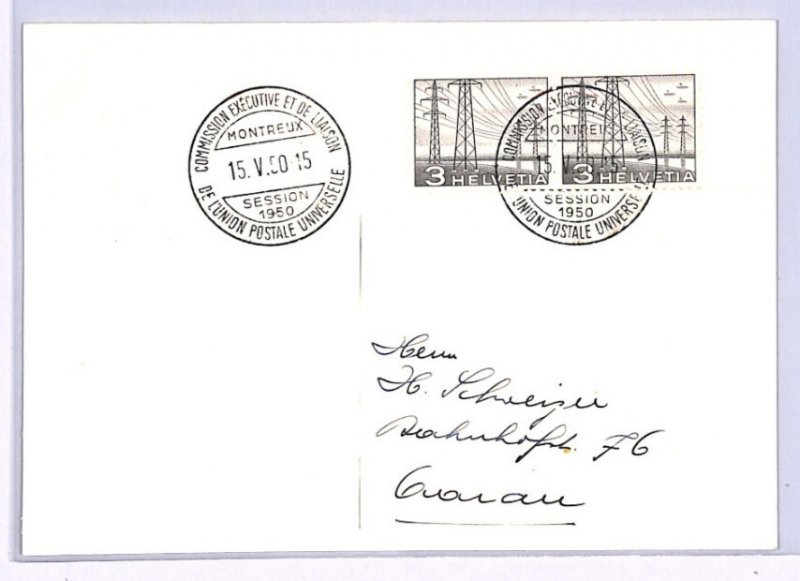 COMMISSION EXÉCUTIVE ET DE LIAISON
MONTREUX
15.V.50-15
SESSION
1950
DE L'UNION POSTALE UNIVERSELLE
3 HELVETIA
3 HELVETIA
COMMISSION EXÉCUTIVE ET DE LIAISON
MONTREUX
15.V.50-15
SESSION
1950
DE L'UNION POSTALE UNIVERSELLE
Herrn
H. Schweizer
Bahnhofstr. 76
Aarau